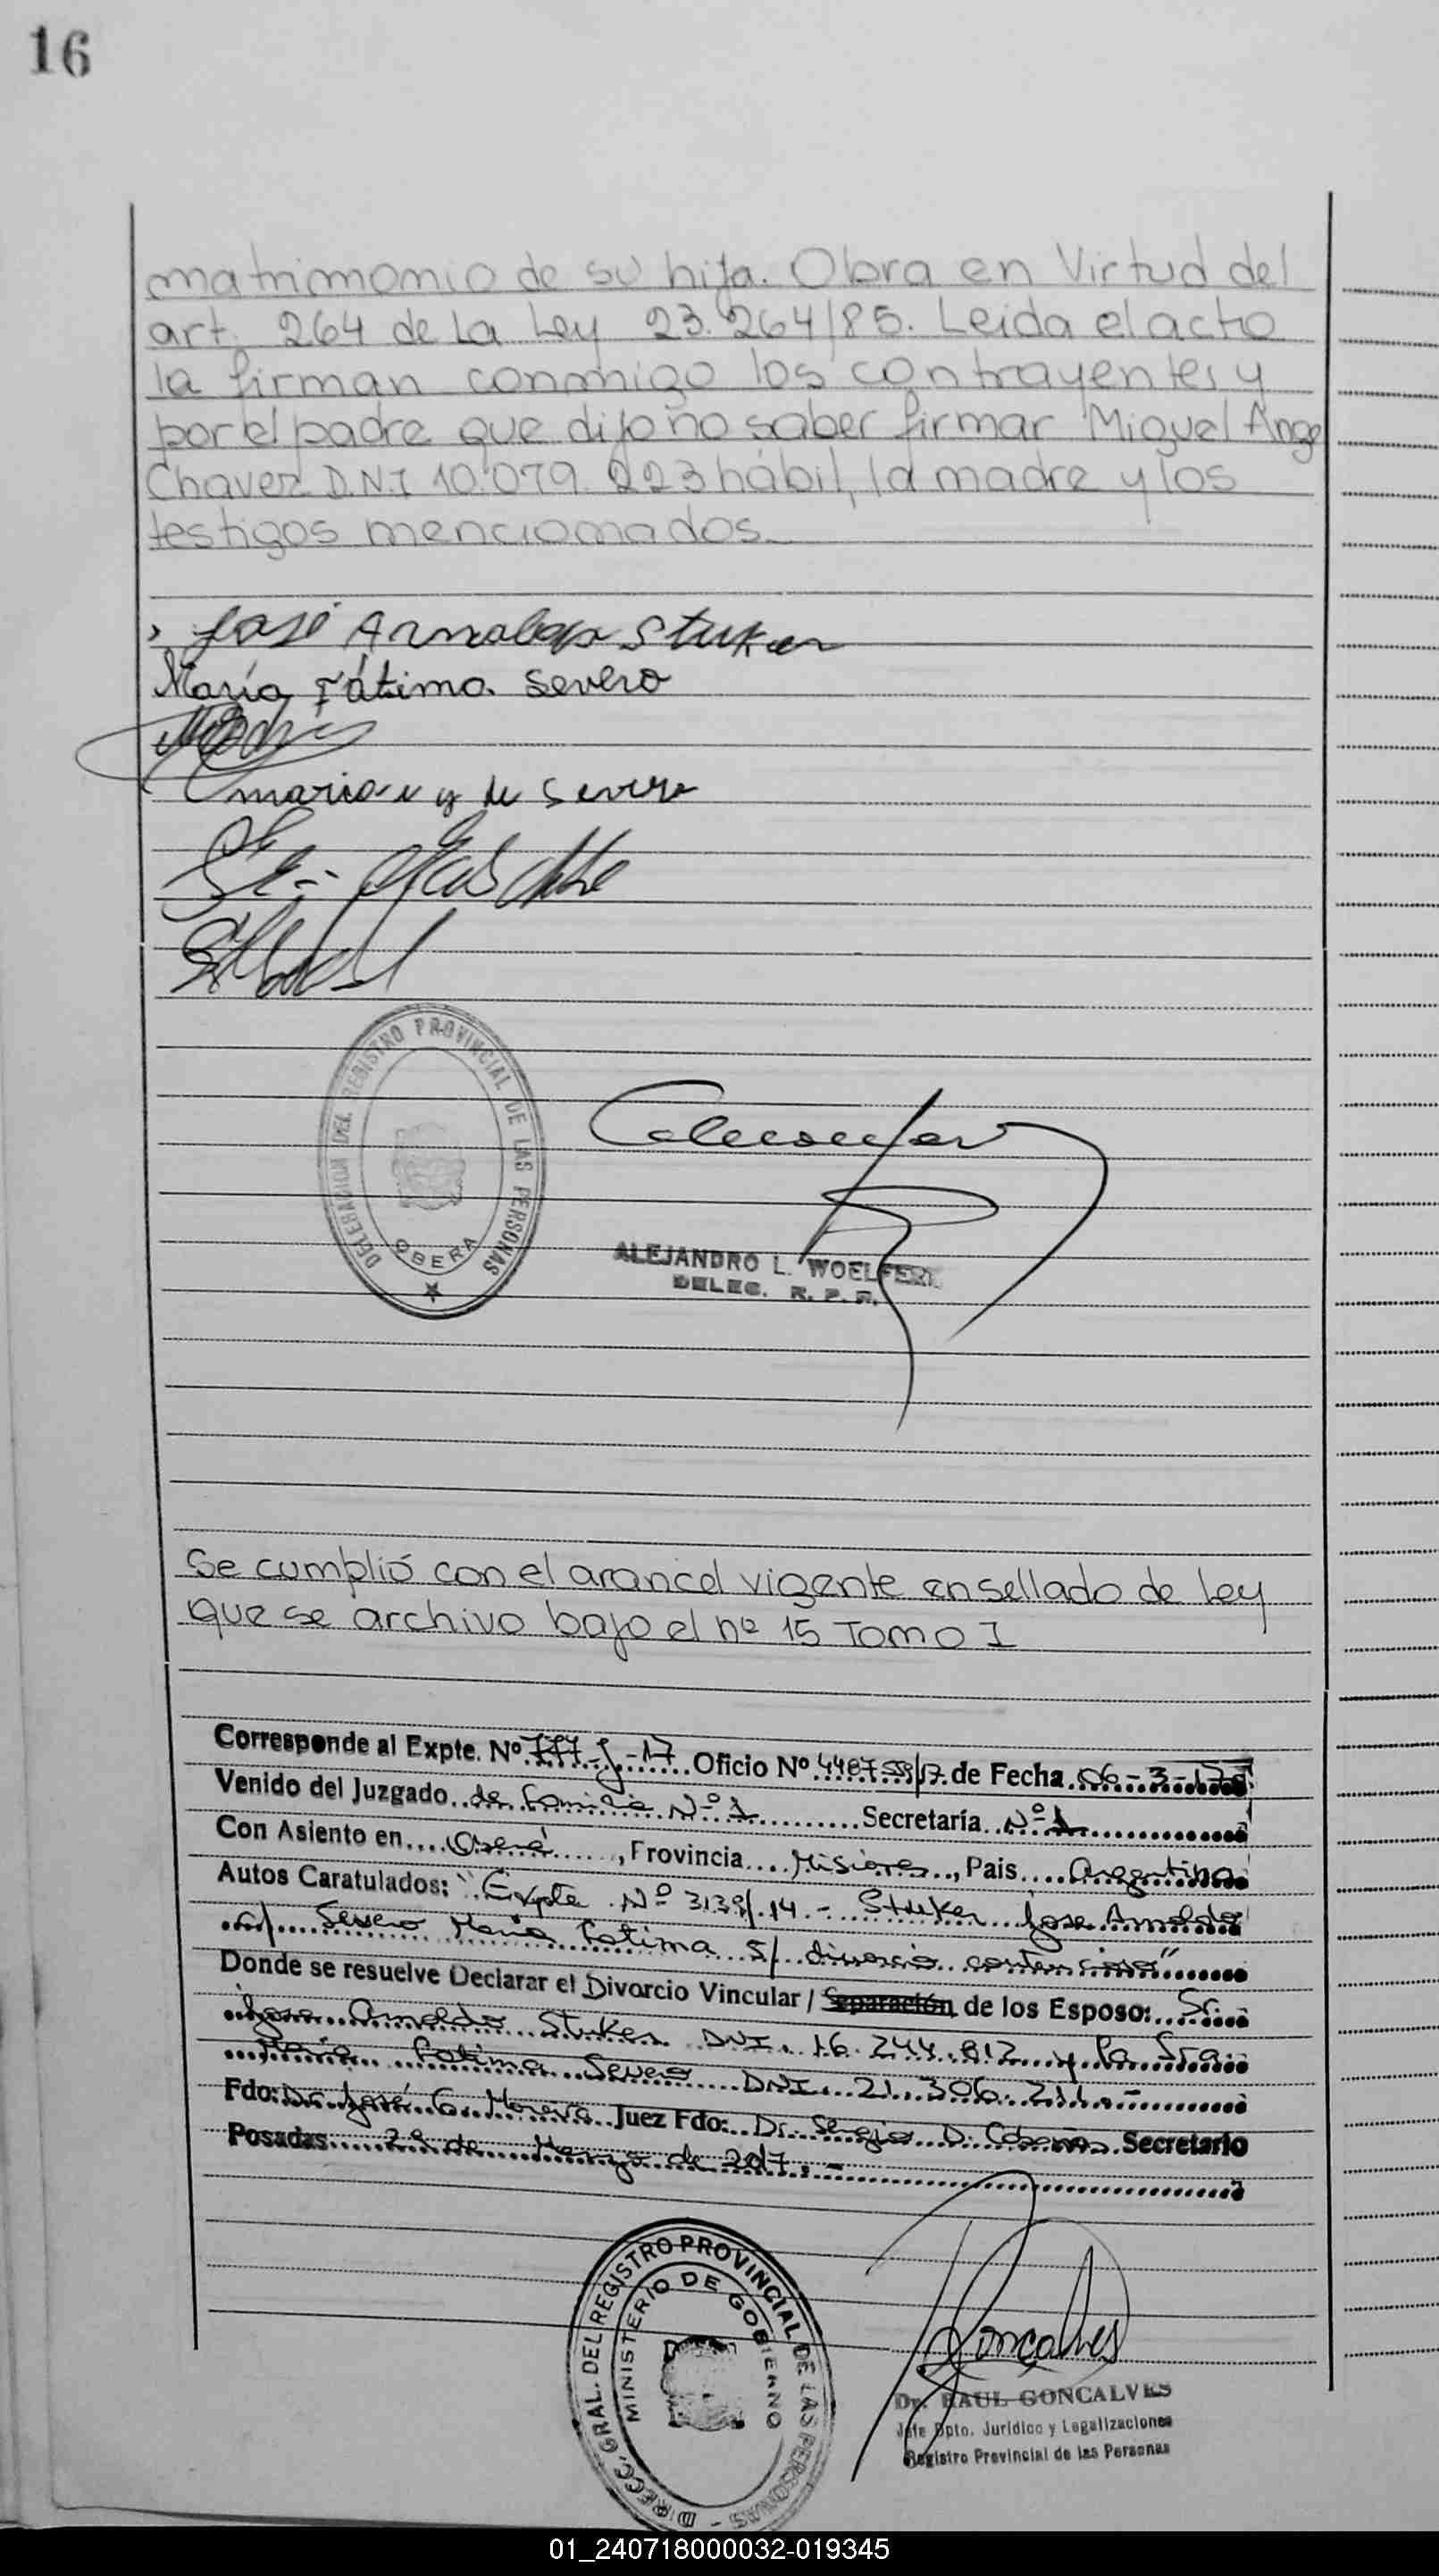 16
matrimonio de su hija. Obra en Virtud del
art. 264 de La Ley 23.264/85. Leida el acto
la firman conmigo los contrayentes y
por el padre que dijo no saber firmar Miguel Ange
Chavez D.N.I 10.079.223 hábil, la madre y los
testigos mencionados.
José Arnaldo Stuker
María Fátima Severo
DELEGACION DEL REGISTRO PROVINCIAL DE LAS PERSONAS
OBERA
ALEJANDRO L. WOELFERT
DELEG. R. P. P.
Se cumplió con el arancel vigente en sellado de Ley
que se archivo bajo el nº 15 Tomo I
Corresponde al Expte. Nº 777-J-17 Oficio Nº 4487 /17 de Fecha 06-3-17
Venido del Juzgado de Familia Nº 1 Secretaría Nº 1
Con Asiento en Oberá, Provincia Misiones, Pais Argentina
Autos Caratulados: "Expte Nº 3139/14 - Stuker Jose Arnoldo
c/ Severo Maria Fatima S/ divorcio contencioso"
Donde se resuelve Declarar el Divorcio Vincular / Separación de los Esposo: Sr.
Jose Arnoldo Stuker DNI. 16.244.812 y la Sra
Maria Fatima Severo DNI. 21.306.211.-
Fdo: Dr. José G. Moreira Juez Fdo: Dr. Sergio D. Secretario
Posadas 29 de Marzo de 2017.-
DIRECC. GRAL. DEL REGISTRO PROVINCIAL DE LAS PERSONAS
MINISTERIO DE GOBIERNO
Goncalves
Dr. RAUL GONCALVES
Jefe Dpto. Jurídico y Legalizaciones
Registro Provincial de las Personas
01_240718000032-019345